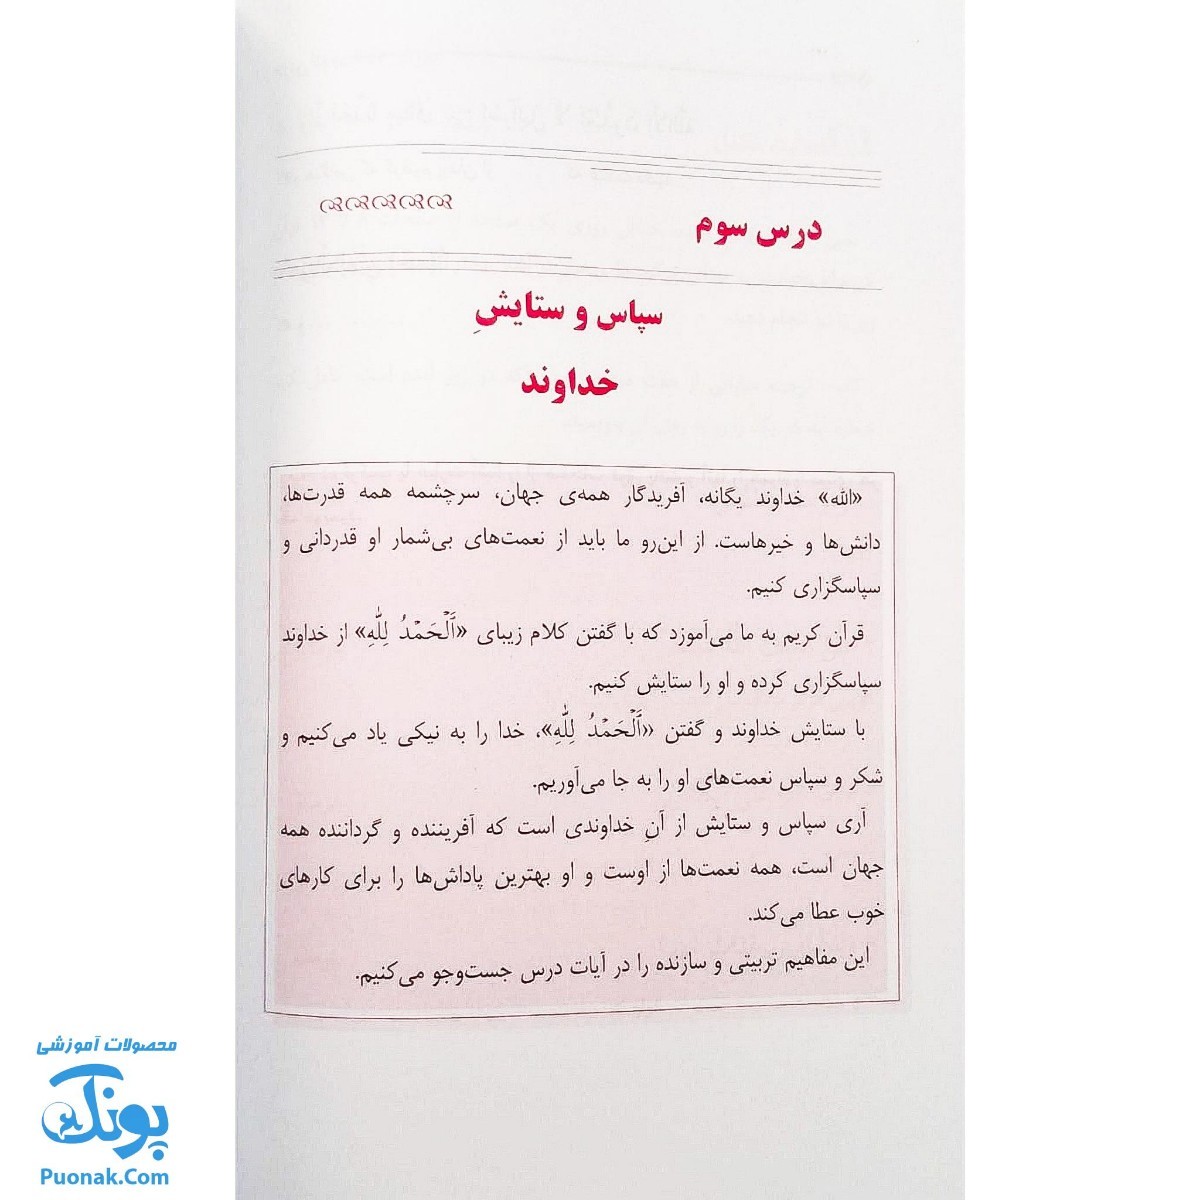 درس سوم
سپاس و ستایشِ
خداوند
«الله» خداوند یگانه، آفریدگار همه‌ی جهان، سرچشمه همه قدرت‌ها،
دانش‌ها و خیرهاست. از این‌رو ما باید از نعمت‌های بی‌شمار او قدردانی و
سپاسگزاری کنیم.
قرآن کریم به ما می‌آموزد که با گفتن کلام زیبای «اَلْحَمْدُ لِلّٰهِ» از خداوند
سپاسگزاری کرده و او را ستایش کنیم.
با ستایش خداوند و گفتن «اَلْحَمْدُ لِلّٰهِ»، خدا را به نیکی یاد می‌کنیم و
شکر و سپاس نعمت‌های او را به جا می‌آوریم.
آری سپاس و ستایش از آنِ خداوندی است که آفریننده و گرداننده همه
جهان است، همه نعمت‌ها از اوست و او بهترین پاداش‌ها را برای کارهای
خوب عطا می‌کند.
این مفاهیم تربیتی و سازنده را در آیات درس جست‌وجو می‌کنیم.
محصولات آموزشی
پونک
Puonak.Com